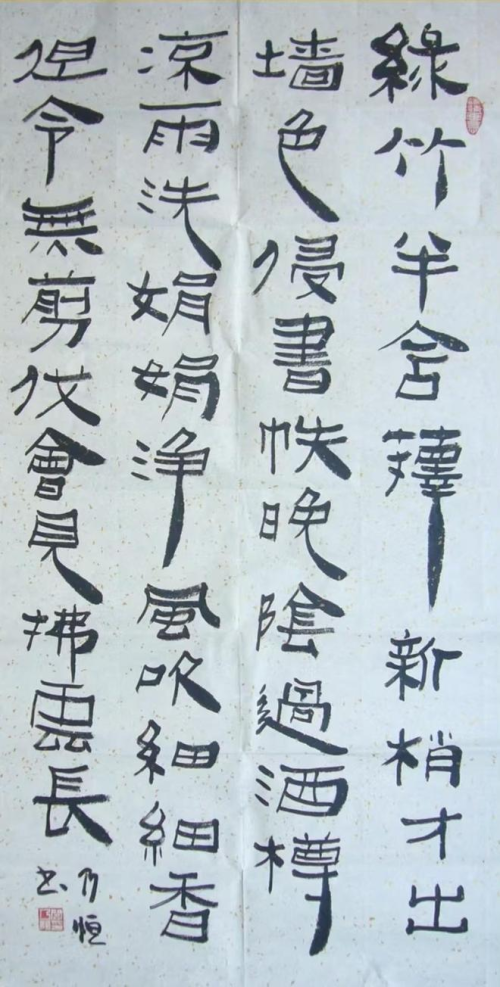 緑竹半含蘀新梢才出
墙色侵書帙晚陰過酒樽
涼雨洗娟娟浄風吹細細香
但令無剪伐會見拂雲長
乃恒
书